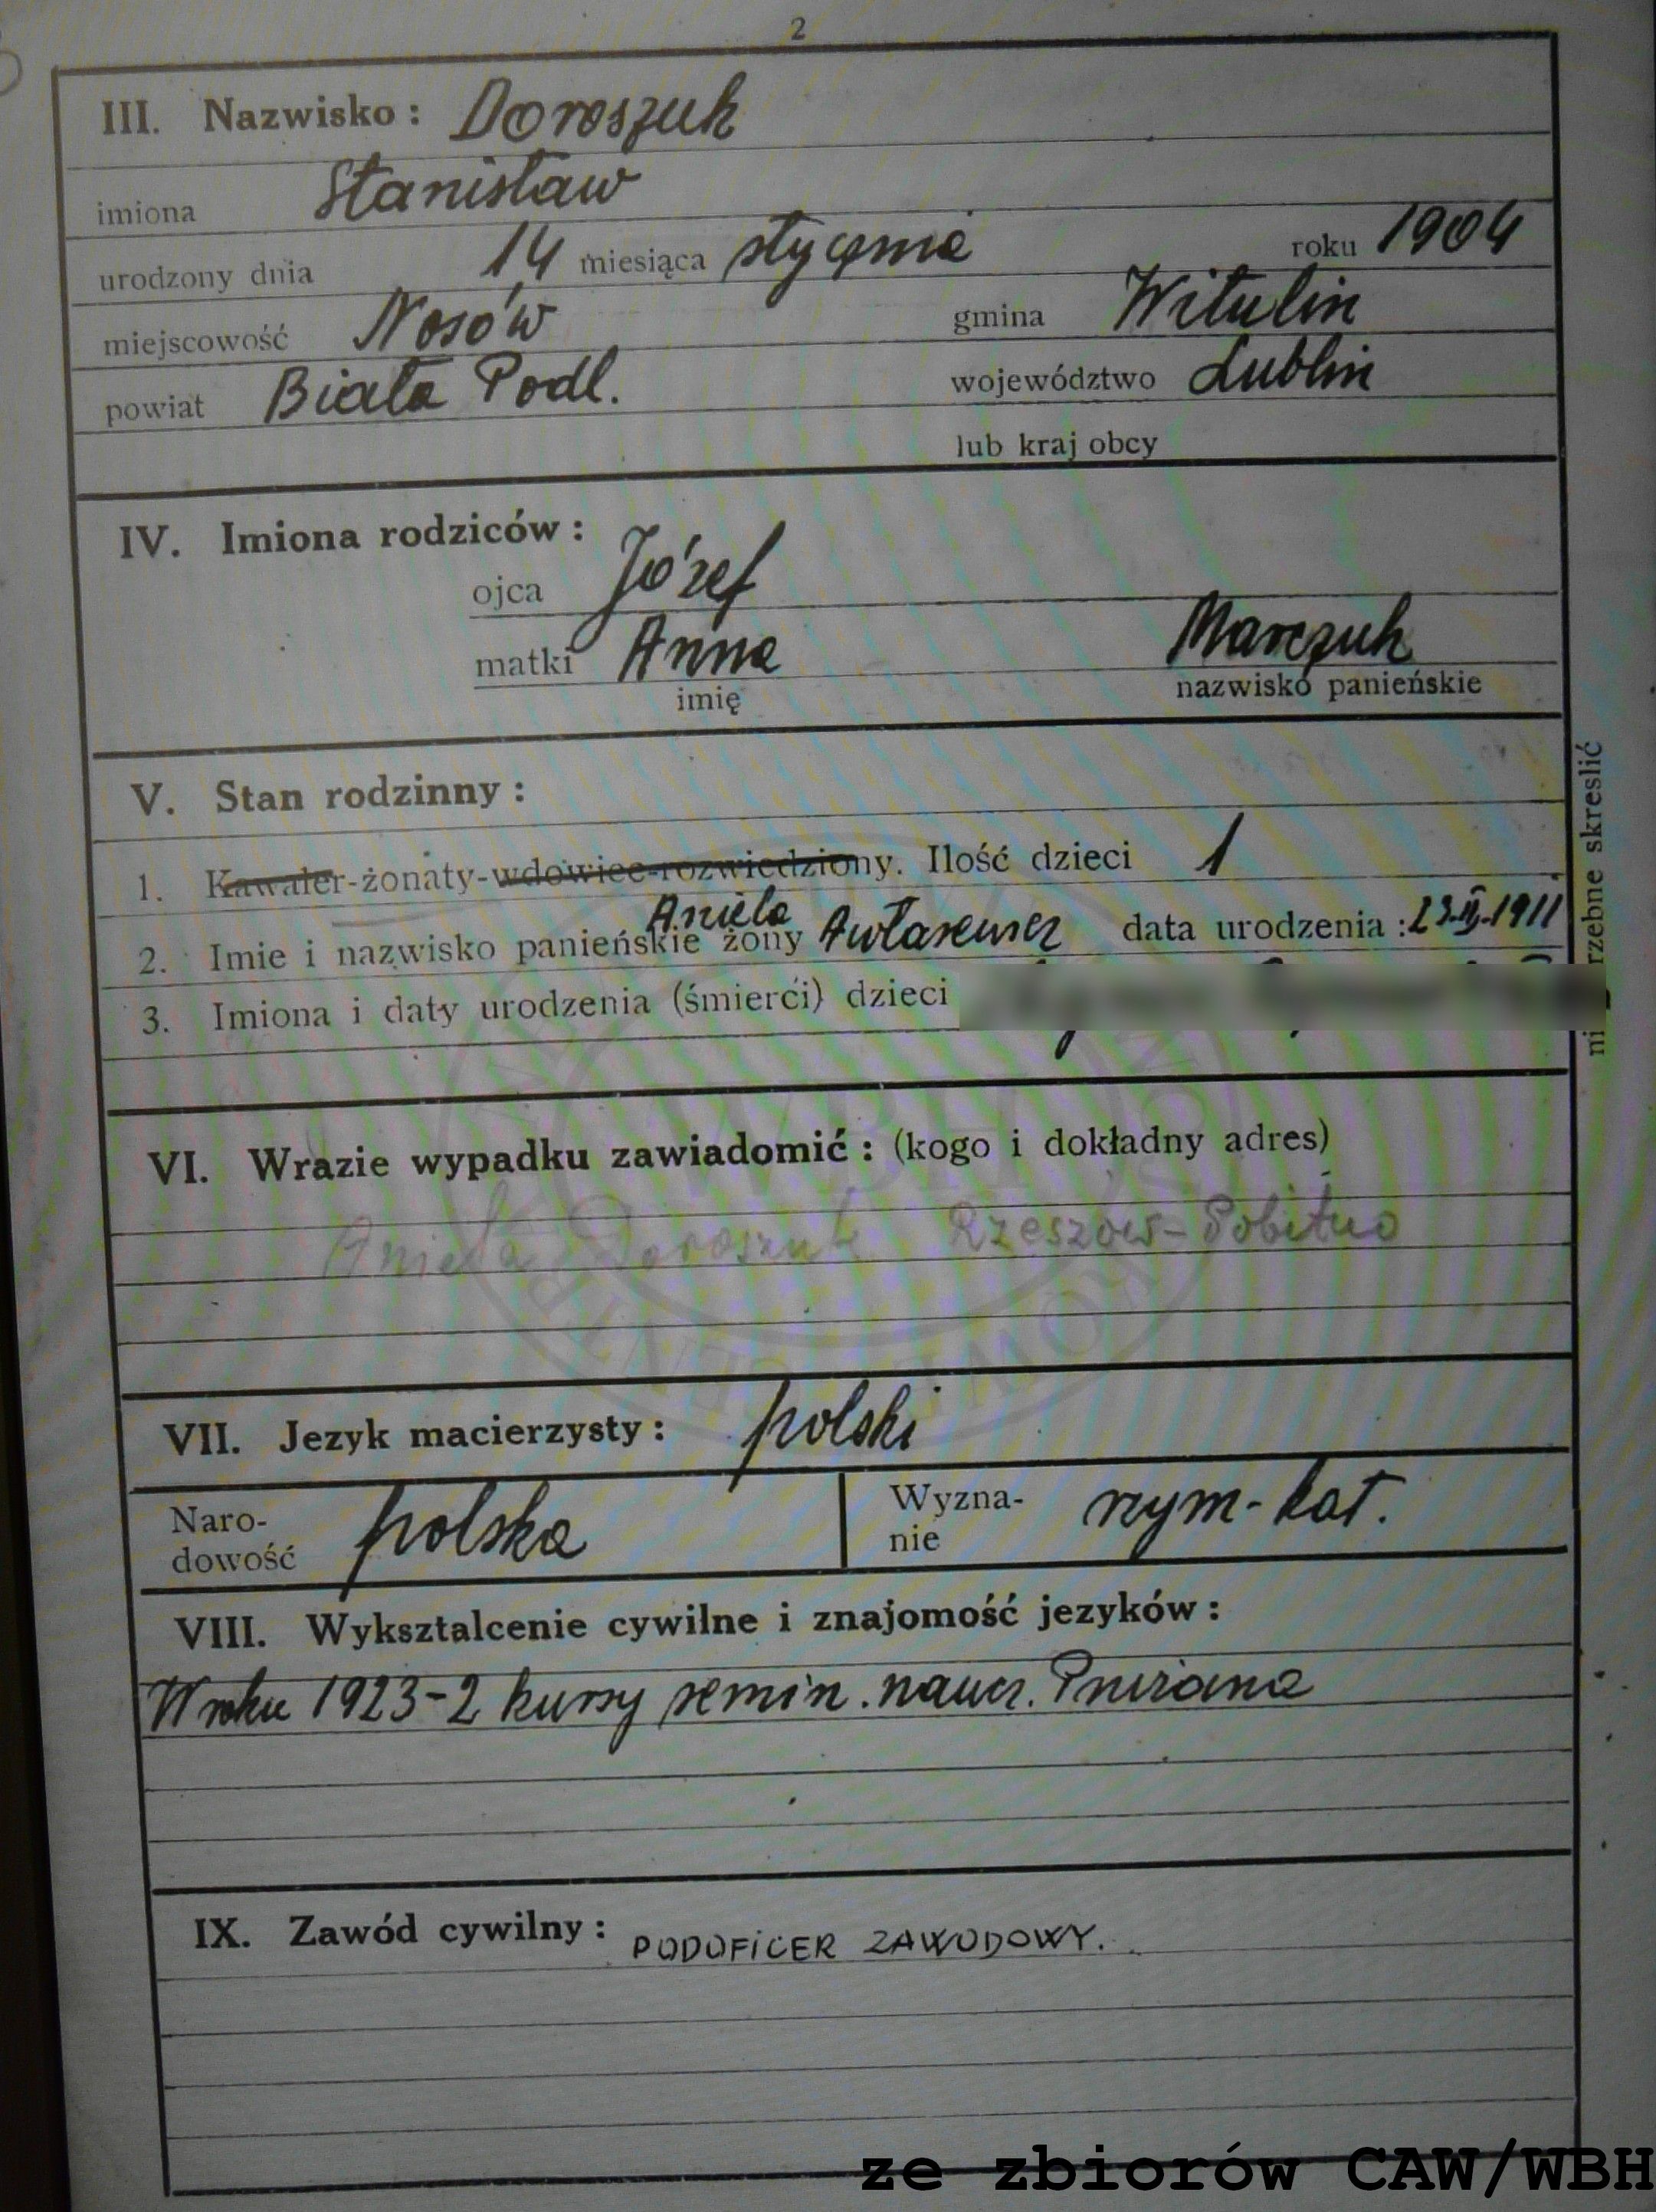 2
III. Nazwisko: Doroszuk
imiona Stanisław
urodzony dnia 14 miesiąca stycznia roku 1904
miejscowość Nosów gmina Witulin
powiat Biała Podl. województwo Lublin
lub kraj obcy
IV. Imiona rodziców:
ojca Józef
matki Anna Marczuk
imię nazwisko panieńskie
V. Stan rodzinny:
1. Kawaler-żonaty-wdowiec-rozwiedziony. Ilość dzieci 1
Aniela
2. Imie i nazwisko panieńskie żony data urodzenia: 1911
3. Imiona i daty urodzenia (śmierci) dzieci
rzebne skreslić
VI. Wrazie wypadku zawiadomić: (kogo i dokładny adres)
Aniela Doroszuk Rzeszów-Pobitno
VII. Jezyk macierzysty: polski
Naro-
dowość polska
Wyzna-
nie rzym-kat.
VIII. Wyksztalcenie cywilne i znajomość jezyków:
W roku 1923-2 kursy semin. naucz.
IX. Zawód cywilny: PODOFICER ZAWODOWY.
WBH
ze zbiorów CAW/WBH